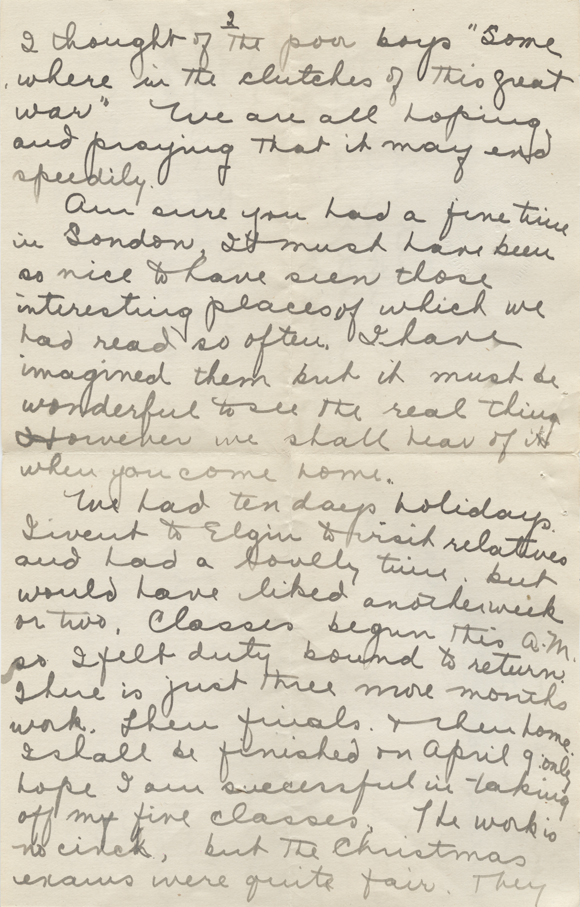 2
I thought of the poor boys "Some
where in the clutches of this great
war" We are all hoping
and praying that it may end
speedily.
Am sure you had a fine time
in London. It must have been
so nice to have seen those
interesting places of which we
had read so often. I have
imagined them but it must be
wonderful to see the real thing
However we shall hear of it
when you come home.
We had ten days holidays.
I went to Elgin to visit relatives
and had a lovely time. but
would have liked another week
or two. Classes begun this A.M.
so I felt duty bound to return.
There is just three more months
work. Then finals. & then home.
I shall be finished on April 9. only
hope I am successful in taking
off my five classes. The work is
no cinch, but the Christmas
exams were quite fair. They